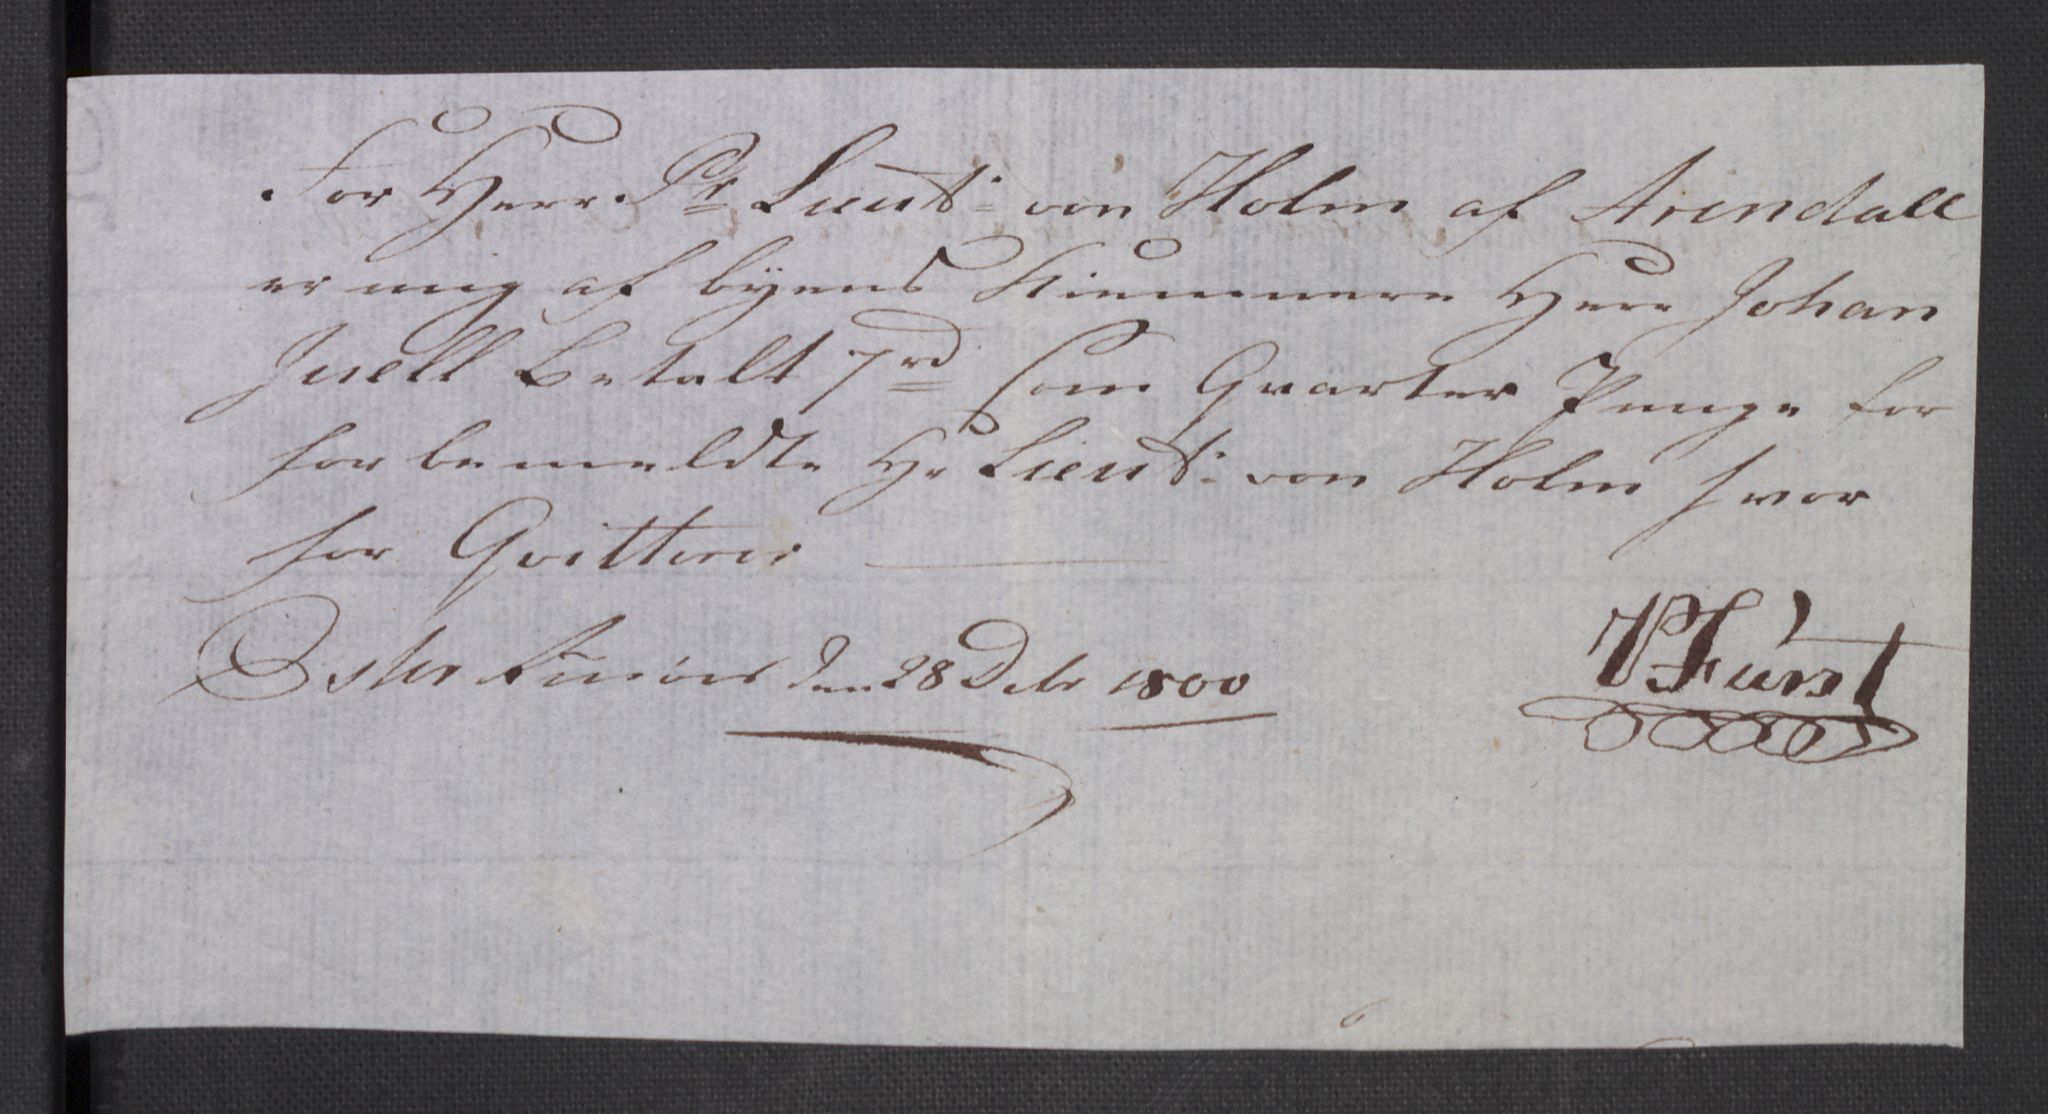 For Herr Pr: Lieut: von Holm af Arendall
er mig af byens Kiemnere Herr Johan
Juell Betalt 7rd som Qvarter Penge for
forbemeldte Hr Lieut: von Holm hvor
for Qvitterer
Øster Riisöer den 28 Debr 1800
Fürst